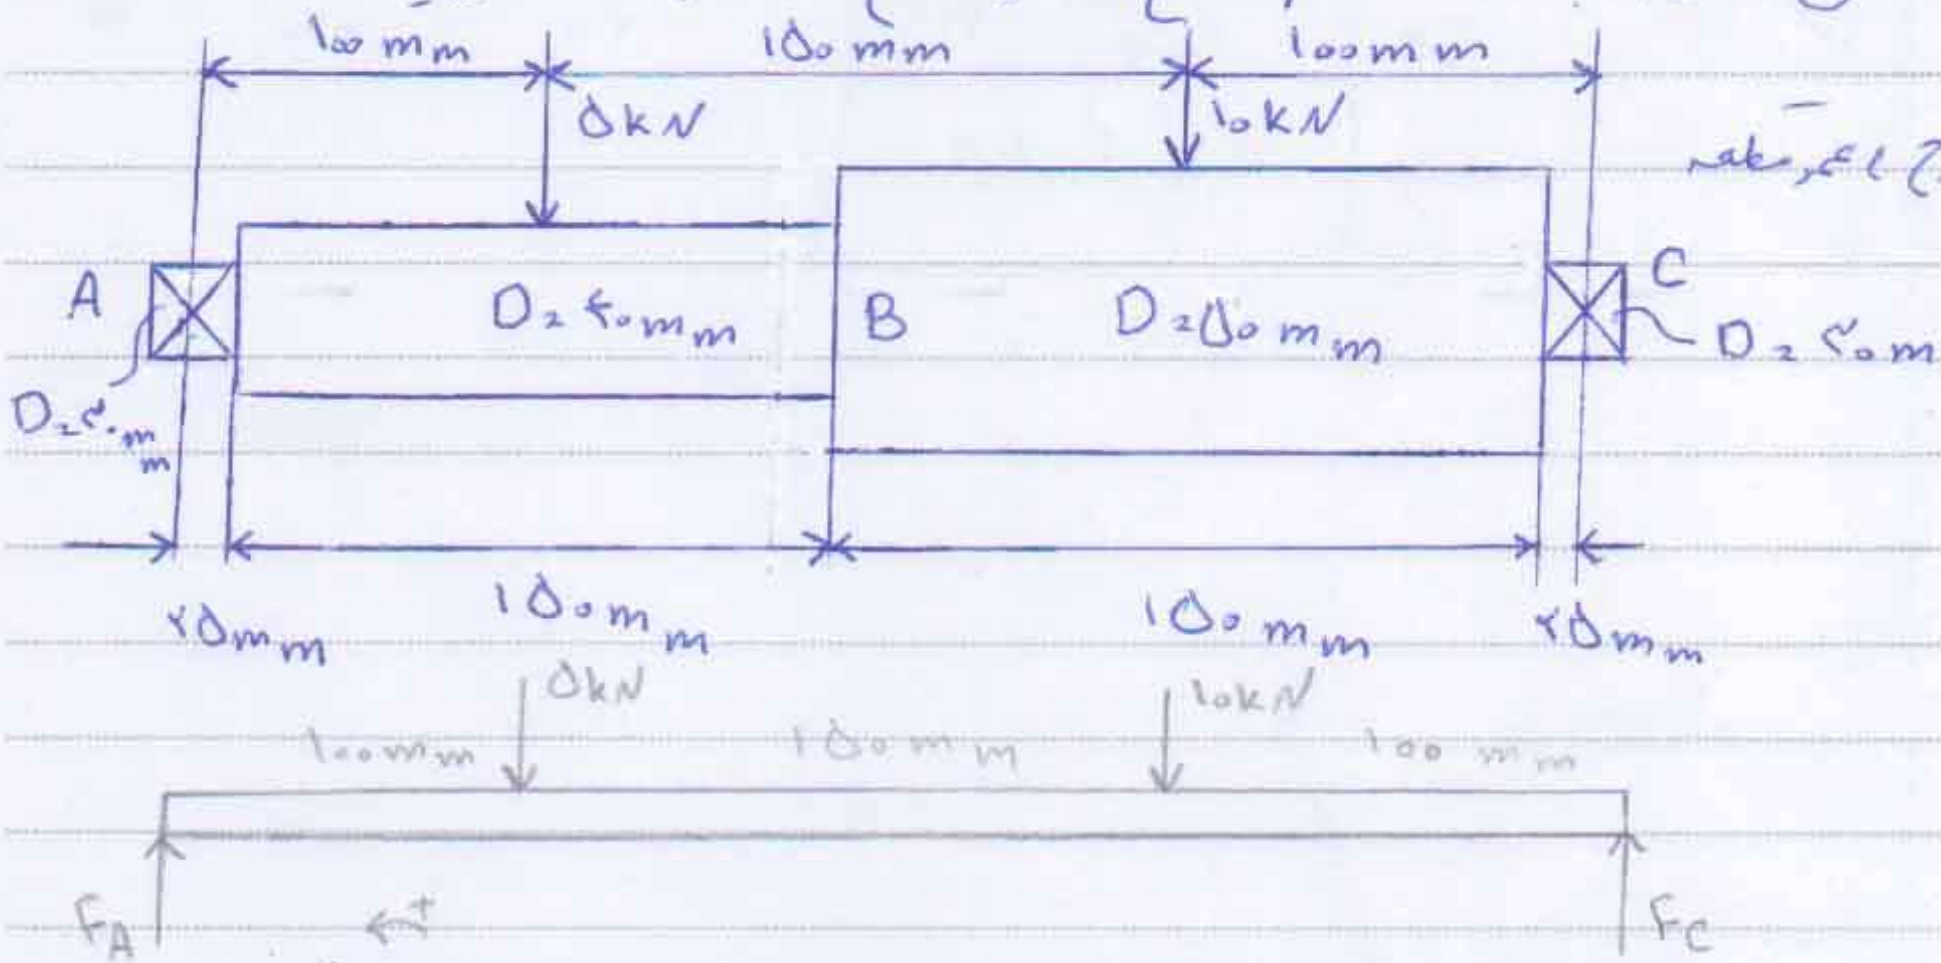 ۱۰۰ mm ۱۵۰ mm ۱۰۰ mm
۵ kN ۱۰ kN
A D = ۴۰ mm B D = ۵۰ mm C
D = ۳۰ mm D = ۳۰ m
۲۵ mm ۱۵۰ mm ۱۵۰ mm ۲۵ mm
۵ kN ۱۰ kN
۱۰۰ mm ۱۵۰ mm ۱۰۰ mm
F_A + F_C